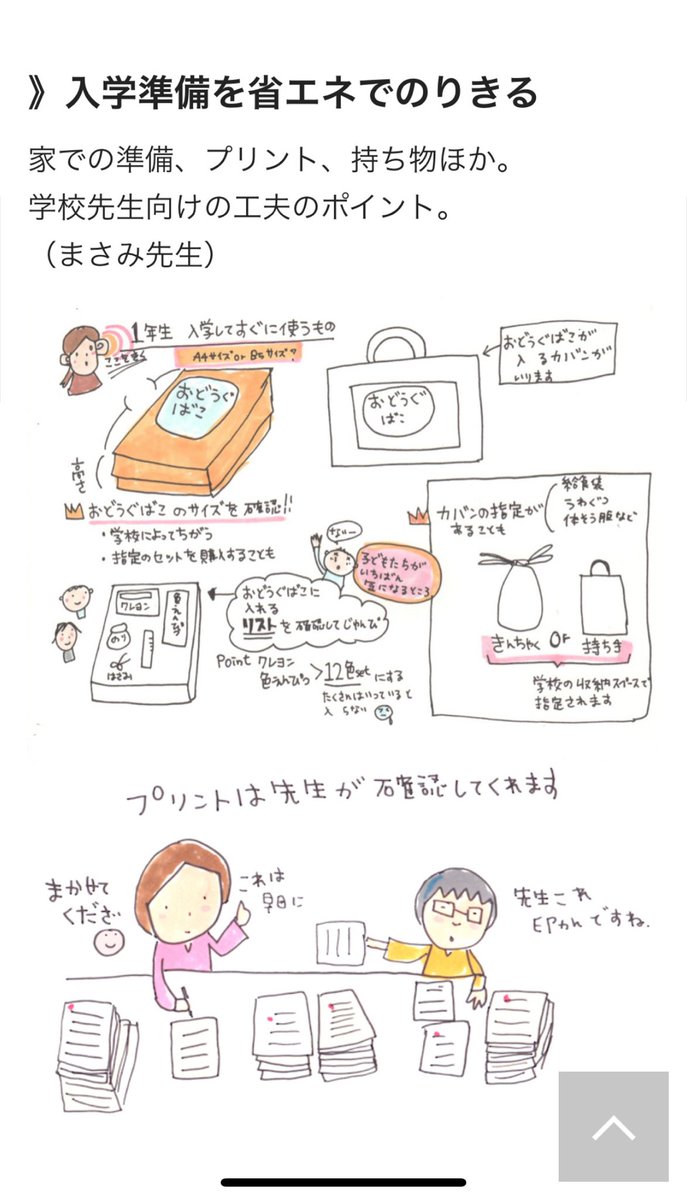 》入学準備を省エネでのりきる
家での準備、プリント、持ち物ほか。
学校先生向けの工夫のポイント。
（まさみ先生）
1年生 入学してすぐに使うもの
A4サイズ or B5サイズ?
おどうぐ
ばこ
高さ
おどうぐばこ のサイズを確認!!
・学校によってちがう
・指定のセットを購入することも
おどうぐ
ばこ
おどうぐばこが
入るカバンが
いります
カバンの指定が
あることも
給食袋
うわぐつ
体そう服など
きんちゃく or 持ち手
学校の収納スペースで
指定されます
ない―
子どもたちが
いちばん
気になるところ
おどうぐばこに
入れる
リストを確認してじゅんび
クレヨン
色えんぴつ
のり
はさみ
Point クレヨン
色えんぴつ > 12色setにする
たくさんはいっていると
入らない
プリントは先生が確認してくれます
まかせて
ください
これは
早日に
先生これ
EPかんですね.